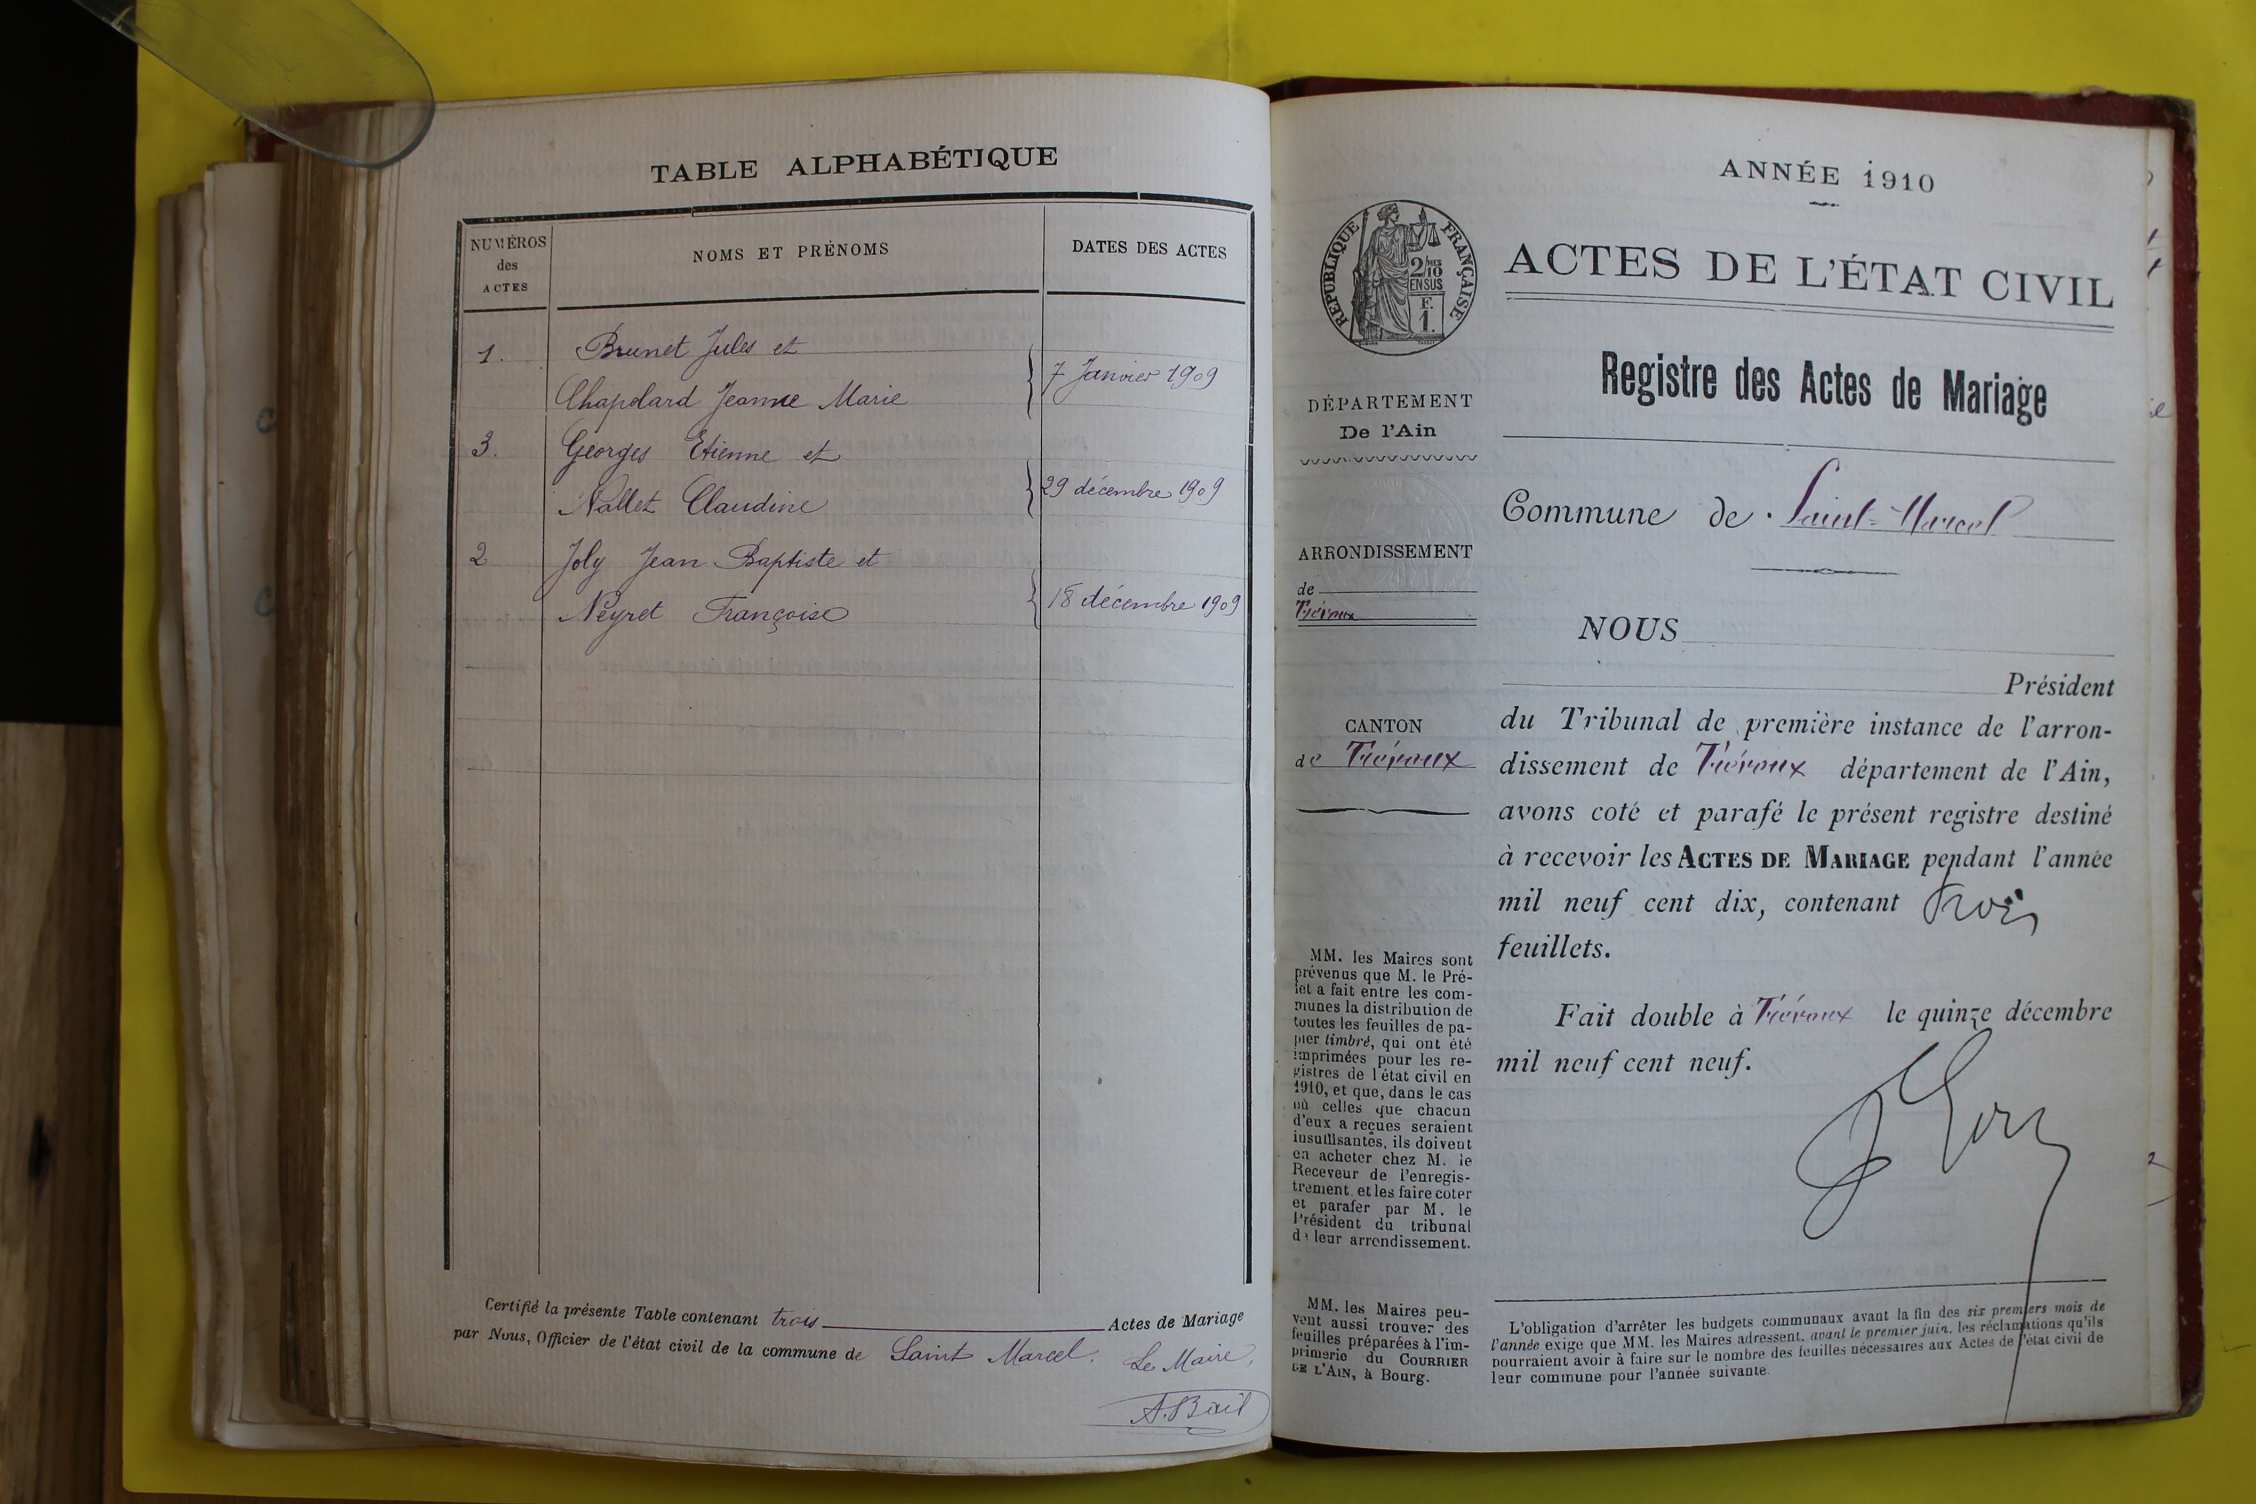 TABLE ALPHABÉTIQUE
NUMÉROS
des
ACTES
NOMS ET PRÉNOMS
DATES DES ACTES
1. Brunet Jules et
Chapolard Jeanne Marie } 7 Janvier 1909
3. Georges Etienne et
Nallet Claudine } 29 décembre 1909
2 Joly Jean-Baptiste et
Neyret Françoise } 18 décembre 1909
Certifié la présente Table contenant trois Actes de Mariage
par Nous, Officier de l'état civil de la commune de Saint Marcel. Le Maire,
A. Bail
ANNÉE 1910
RÉPUBLIQUE FRANÇAISE
2/10
EN SUS
F.
1.
DÉPARTEMENT
De l'Ain
ARRONDISSEMENT
de
Trévoux
CANTON
de Trévoux
MM. les Maires sont
prévenus que M. le Pré-
fet a fait entre les com-
munes la distribution de
toutes les feuilles de pa-
pier timbré, qui ont été
imprimées pour les re-
gistres de l'état civil en
1910, et que, dans le cas
où celles que chacun
d'eux a reçues seraient
insuffisantes, ils doivent
en acheter chez M. le
Receveur de l'enregis-
trement et les faire coter
et parafer par M. le
Président du tribunal
de leur arrondissement.
MM. les Maires peu-
vent aussi trouver des
feuilles préparées à l'im-
primerie du COURRIER
DE L'AIN, à Bourg.
ACTES DE L'ÉTAT CIVIL
Registre des Actes de Mariage
Commune de Saint-Marcel
NOUS
Président
du Tribunal de première instance de l'arron-
dissement de Trévoux département de l'Ain,
avons coté et parafé le présent registre destiné
à recevoir les ACTES DE MARIAGE pendant l'année
mil neuf cent dix, contenant trois
feuillets.
Fait double à Trévoux le quinze décembre
mil neuf cent neuf.
L'obligation d'arrêter les budgets communaux avant la fin des six premiers mois de
l'année exige que MM. les Maires adressent, avant le premier juin, les réclamations qu'ils
pourraient avoir à faire sur le nombre des feuilles nécessaires aux Actes de l'état civil de
leur commune pour l'année suivante.